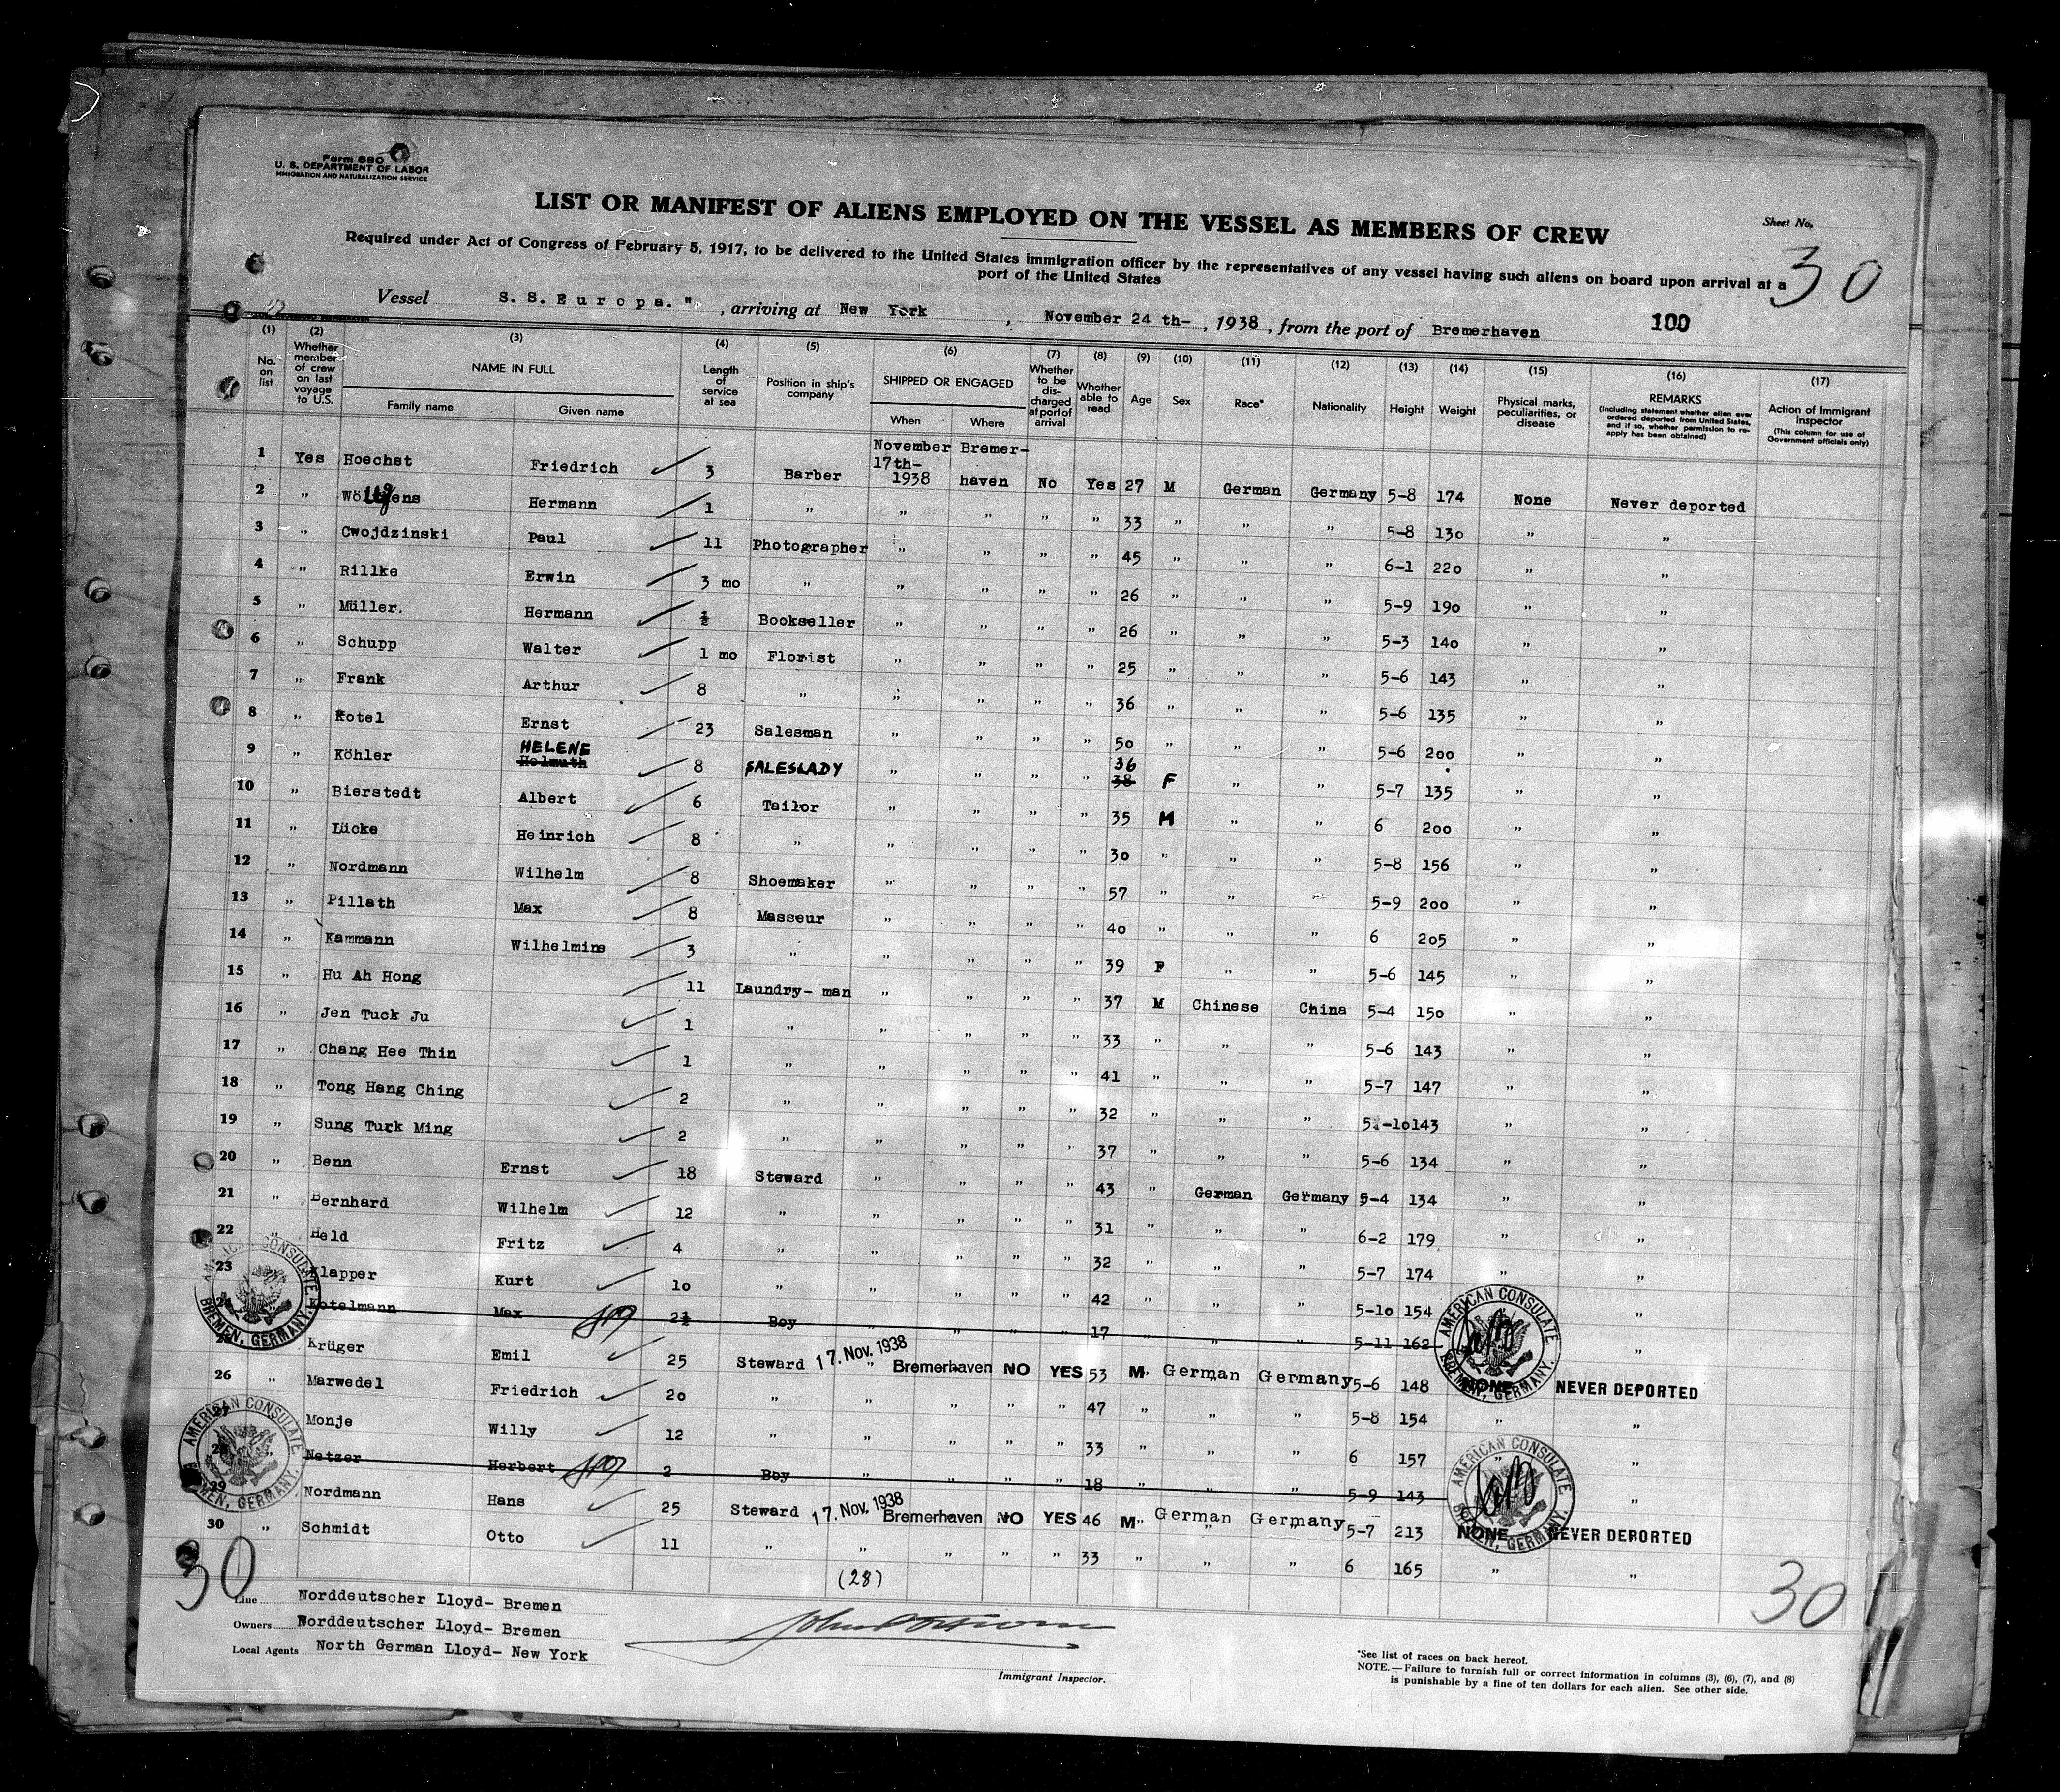 Form 680
U. S. DEPARTMENT OF LABOR
IMMIGRATION AND NATURALIZATION SERVICE
LIST OR MANIFEST OF ALIENS EMPLOYED ON THE VESSEL AS MEMBERS OF CREW
Sheet No.
30
Required under Act of Congress of February 5, 1917, to be delivered to the United States immigration officer by the representatives of any vessel having such aliens on board upon arrival at a
port of the United States
Vessel S. S. Europa. ", arriving at New York, November 24 th-, 1938, from the port of Bremerhaven 100
(1) No. on list (2) Whether member of crew on last voyage to U.S. (3) NAME IN FULL Family name Given name (4) Length of service at sea (5) Position in ship's company (6) SHIPPED OR ENGAGED When Where (7) Whether to be discharged at port of arrival (8) Whether able to read (9) Age (10) Sex (11) Race* (12) Nationality (13) Height (14) Weight (15) Physical marks, peculiarities, or disease (16) REMARKS (Including statement whether alien ever ordered deported from United States, and if so, whether permission to re-apply has been obtained) (17) Action of Immigrant Inspector (This column for use of Government officials only)
1 Yes Hoechst Friedrich 3 Barber November 17th- 1938 Bremer-haven No Yes 27 M German Germany 5-8 174 None Never deported
2 " Hermann 1 " " " " " 33 " " " 5-8 130 " "
3 " Cwojdzinski Paul 11 Photographer " " " " 45 " " " 6-1 220 " "
4 " Rillke Erwin 3 mo " " " " " 26 " " " 5-9 190 " "
5 " Müller. Hermann ½ Bookseller " " " " 26 " " " 5-3 140 " "
6 " Schupp Walter 1 mo Florist " " " " 25 " " " 5-6 143 " "
7 " Frank Arthur 8 " " " " " 36 " " " 5-6 135 " "
8 " Kotel Ernst 23 Salesman " " " " 50 " " " 5-6 200 " "
9 " Köhler HELENE Helmuth 8 SALESLADY " " " " 36 38 F " " 5-7 135 " "
10 " Bierstedt Albert 6 Tailor " " " " 35 M " " 6 200 " "
11 " Lücke Heinrich 8 " " " " " 30 " " " 5-8 156 " "
12 " Nordmann Wilhelm 8 Shoemaker " " " " 57 " " " 5-9 200 " "
13 " Pillath Max 8 Masseur " " " " 40 " " " 6 205 " "
14 " Kammann Wilhelmine 3 " " " " " 39 F " " 5-6 145 " "
15 " Hu Ah Hong 11 Laundry- man " " " " 37 M Chinese China 5-4 150 " "
16 " Jen Tuck Ju 1 " " " " " 33 " " " 5-6 143 " "
17 " Chang Hee Thin 1 " " " " " 41 " " " 5-7 147 " "
18 " Tong Hang Ching 2 " " " " " 32 " " " 5-10 143 " "
19 " Sung Turk Ming 2 " " " " " 37 " " " 5-6 134 " "
20 " Benn Ernst 18 Steward " " " " 43 " German Germany 5-4 134 " "
21 " Bernhard Wilhelm 12 " " " " " 31 " " " 6-2 179 " "
22 " Held Fritz 4 " " " " " 32 " " " 5-7 174 " "
23 Klapper Kurt 10 " " " " " 42 " " " 5-10 154 "
Kotelmann Max 2½ Boy " " " " 17 " " " 5-11 162 "
Krüger Emil 25 Steward 17. Nov. 1938 Bremerhaven NO YES 53 M German Germany 5-6 148 NONE NEVER DEPORTED
26 " Marwedel Friedrich 20 " " " " " 47 " " " 5-8 154 " "
Monje Willy 12 " " " " " 33 " " " 6 157 " "
Netzer Herbert 2 Boy " " " " 18 " " " 5-9 143 "
29 Nordmann Hans 25 Steward 17. Nov. 1938 Bremerhaven NO YES 46 M German Germany 5-7 213 NONE NEVER DEPORTED
30 " Schmidt Otto 11 " " " " " 33 " " " 6 165 " "
AMERICAN CONSULATE BREMEN, GERMANY.
AMERICAN CONSULATE BREMEN, GERMANY.
AMERICAN CONSULATE BREMEN, GERMANY.
AMERICAN CONSULATE BREMEN, GERMANY.
(28)
30
30
Line Norddeutscher Lloyd- Bremen
Owners Norddeutscher Lloyd- Bremen
Local Agents North German Lloyd- New York
Immigrant Inspector.
*See list of races on back hereof.
NOTE.—Failure to furnish full or correct information in columns (3), (6), (7), and (8)
is punishable by a fine of ten dollars for each alien. See other side.